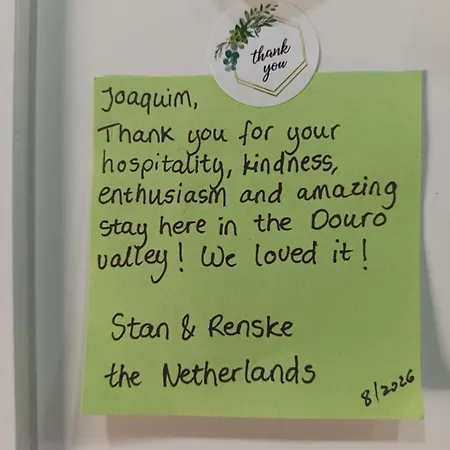 thank
you
Joaquim,
Thank you for your
hospitality, kindness,
enthusiasm and amazing
stay here in the Douro
valley! We loved it!
Stan & Renske
the Netherlands
8/2026